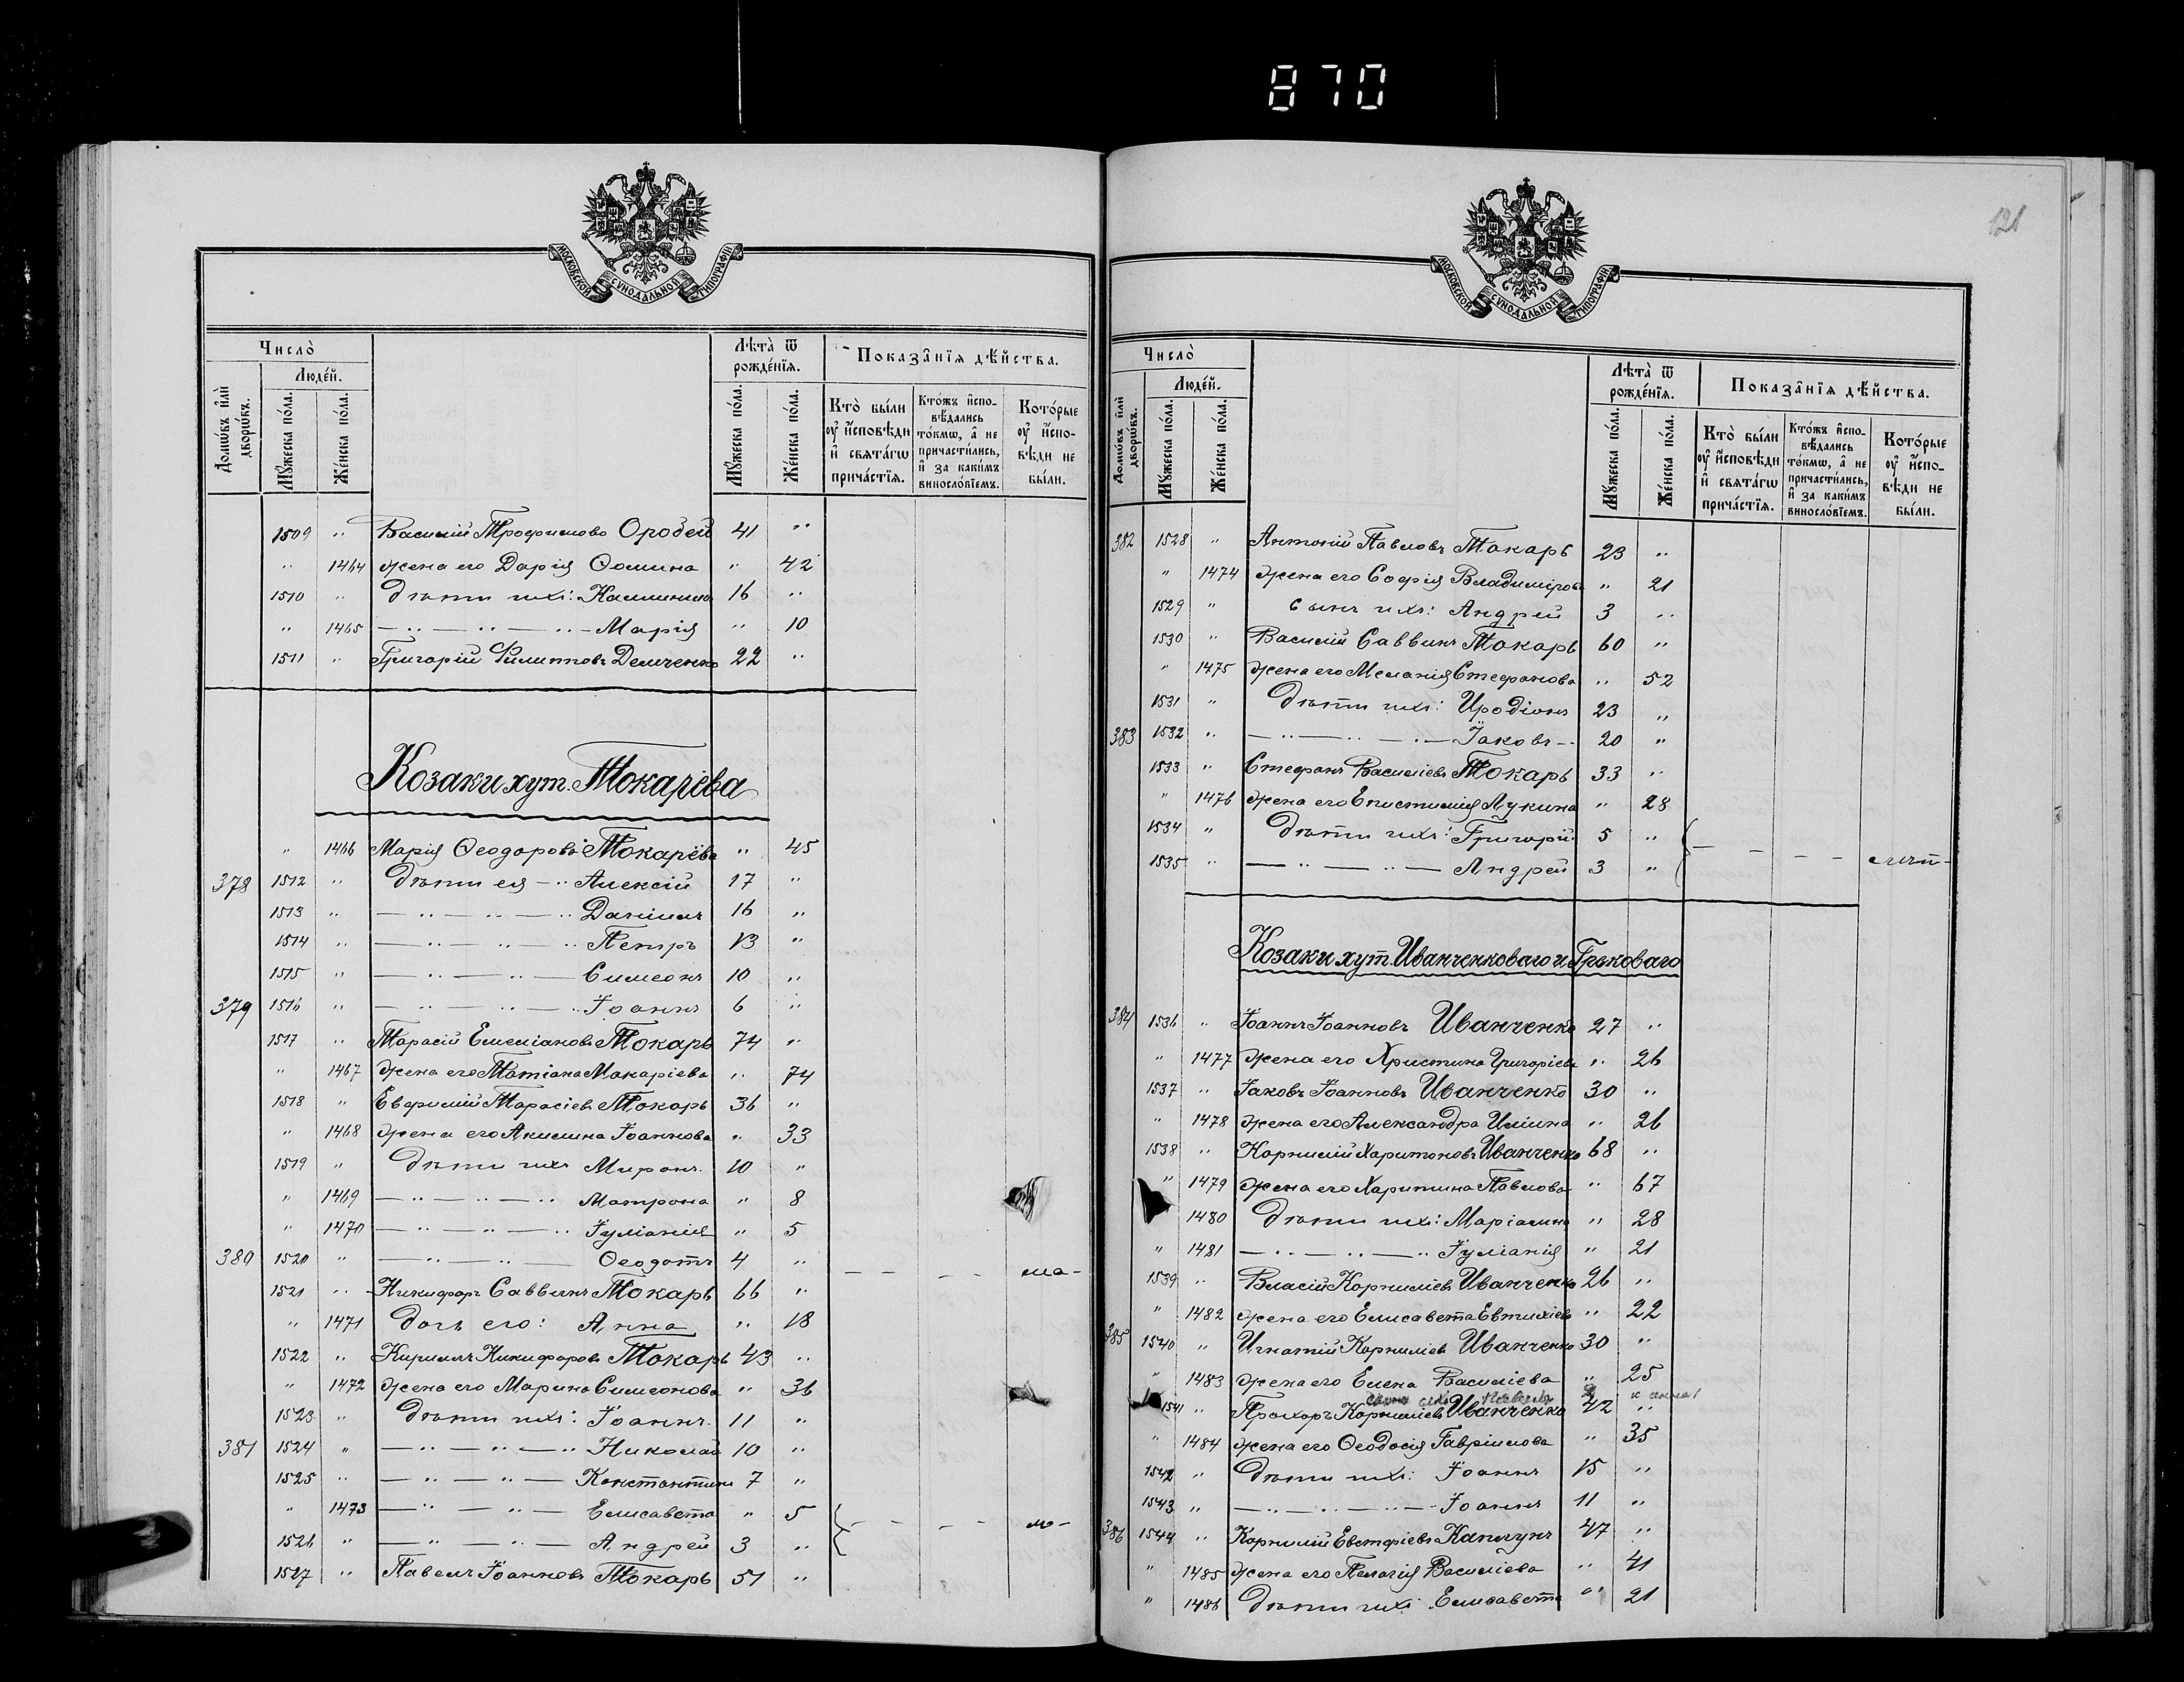 870
МОСКОВСКОЙ СѴНОДАЛЬНОЙ ТИПОГРАФІИ
Число̀
Людéй.
Домѡ́въ и҆лѝ дворѡ́въ.
Мꙋ́жеска по́ла.
Же́нска по́ла.
Лѣ́та ѿ рожде́нїѧ.
Мꙋ́жеска по́ла.
Же́нска по́ла.
Показа̑нїѧ дѣ́йства.
Кто̀ бы́ли оу҆ и҆́сповѣди и҆ свѧта́гѡ прича́стїѧ.
Кто́жъ и҆спо-вѣ́дались то́кмѡ, а҆ не причасти́лись, и҆ за каки́мъ винословїемъ.
Кото́рые оу҆ и҆́спо-вѣди не бы́ли.
1509 " Василій Трофимовъ Оробей 41 "
" 1464 жена его Дарія Ѳомина " 42
1510 " Дѣти ихъ: Каллиникъ 16 "
" 1465 — " — " — " — Марія " 10
1511 " Григорій Филипповъ Демченко 22 "
Козаки хут. Токарева
" 1466 Марія Ѳеодорова Токарева " 45
378 1512 " Дѣти ея — " Алексій 17 "
1513 " — " — " — " Даніилъ 16 "
1514 " — " — " — " Петръ 13 "
1515 " — " — " — Симеонъ 10 "
379 1516 " — " — " — " Іоаннъ 6 "
1517 " Тарасій Емеліановъ Токарь 74 "
" 1467 жена его Татіана Макаріева " 74
1518 " Евфимій Тарасіевъ Токарь 36 "
" 1468 жена его Акилина Іоаннова " 33
1519 " Дѣти ихъ Миронъ 10 "
" 1469 — " — " — " Матрона " 8
" 1470 — " — " — " Іуліанія " 5
380 1520 " — " — " — Ѳеодотъ 4 "
1521 " Никифоръ Саввинъ Токарь 66 "
" 1471 дочь его: Анна " 18
1522 " Кириллъ Никифоровъ Токарь 43 "
" 1472 жена его Марина Симеонова " 36
1523 " Дѣти ихъ: Іоаннъ 11 "
381 1524 " — " — " — " Николай 10 "
1525 " — " — " — Константинъ 7 "
" 1473 — " — " — Елисавета " 5
1526 " — " — " — Андрей 3 "
1527 " Павелъ Іоанновъ Токарь 51 "
121
МОСКОВСКОЙ СѴНОДАЛЬНОЙ ТИПОГРАФІИ
Число̀
Людéй.
Домѡ́въ и҆лѝ дворѡ́въ.
Мꙋ́жеска по́ла.
Же́нска по́ла.
Лѣ́та ѿ рожде́нїѧ.
Мꙋ́жеска по́ла.
Же́нска по́ла.
Показа̑нїѧ дѣ́йства.
Кто̀ бы́ли оу҆ и҆́сповѣди и҆ свѧта́гѡ прича́стїѧ.
Кто́жъ и҆спо-вѣ́дались то́кмѡ, а҆ не причасти́лись, и҆ за каки́мъ винословїемъ.
Кото́рые оу҆ и҆́спо-вѣди не бы́ли.
382 1528 " Антоній Павловъ Токарь 23 "
" 1474 жена его Софія Владимірова " 21
1529 " сынъ ихъ: Андрей 3 "
1530 " Василій Саввинъ Токарь 60 "
" 1475 жена его Меланія Стефанова " 52
1531 " Дѣти ихъ: Иродіонъ 23 "
383 1532 " — " — " — " — Іаковъ 20 "
1533 " Стефанъ Василіевъ Токарь 33 "
" 1476 жена его Епистимія Лукина " 28
1534 " Дѣти ихъ: Григорій 5 "
1535 " — " — " — Андрей 3 "
Козаки хут. Иванченковаго и Грековаго
384 1536 " Іоаннъ Іоанновъ Иванченко 27 "
" 1477 жена его Христина Григоріева " 26
1537 " Іаковъ Іоанновъ Иванченко 30 "
" 1478 жена его Александра Иліина " 26
1538 " Корнилій Харитоновъ Иванченко 68 "
" 1479 жена его Харитина Павлова " 67
1480 Дѣти ихъ: Маріамна " 28
" 1481 — " — " — " Іуліанія " 21
1539 " Власій Корниліевъ Иванченко 26 "
" 1482 жена его Елисавета Евтихіева " 22
385 1540 " Игнатій Корниліевъ Иванченко 30 "
" 1483 жена его Елена Василіева " 25
Павелъ
1541 " Прохоръ Корниліевъ Иванченко 42 "
" 1484 жена его Ѳеодосія Гавріилова " 35
1542 " Дѣти ихъ: Іоаннъ 15 "
1543 " — " — " — " — Іоаннъ 11 "
386 1544 " Корнилій Евстафіевъ Каплунъ 47 "
" 1485 жена его Пелагія Василіева " 41
" 1486 Дѣти ихъ: Елисавета " 21